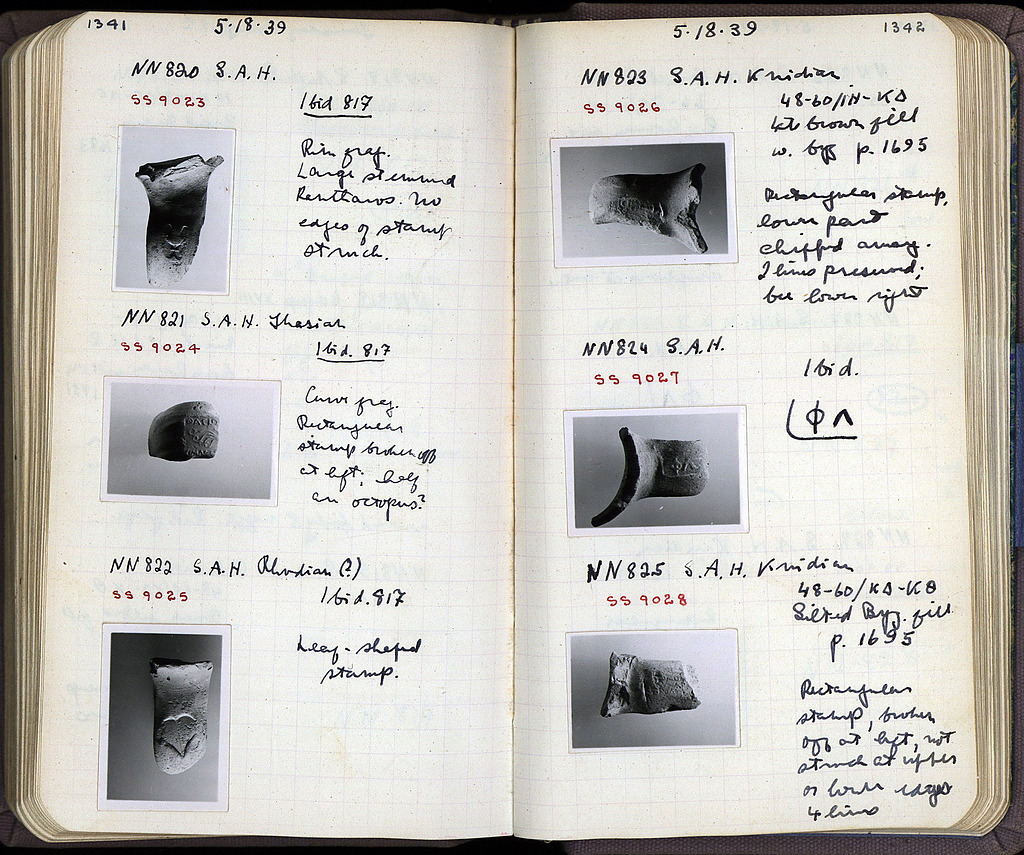 1341
5·18·39
NN820 S.A.H.
SS 9023
Ibid 817
Rim frag.
Large stemmed
Kantharos. No
edges of stamp
struck.
NN821 S.A.H. Thasian
SS 9024
Ibid. 817
Curve frag.
Rectangular
stamp broken off
at left; half
an octopus?
NN822 S.A.H. Rhodian (?)
SS 9025
Ibid. 817
Leaf-shaped
stamp.
5·18·39
1342
NN823 S.A.H. Knidian
SS 9026
48-60/ΙΗ-ΚΔ
Lt. brown fill
w. byz p. 1695
Rectangular stamp,
lower part
chipped away.
2 lines preserved;
bee lower right
NN824 S.A.H.
SS 9027
Ibid.
ΦΛ
ΦΛ
NN825 S.A.H. Knidian
SS 9028
48-60/ΚΔ-ΚΘ
Silted Byz. fill
p. 1695
Rectangular
stamp, broken
off at left, not
struck at upper
or lower edges
4 lines